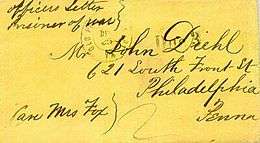 officers Letter
Prisoner of war
Mr John Diehl
621 South Front St
Philadelphia
Penna
Care Mrs Fox